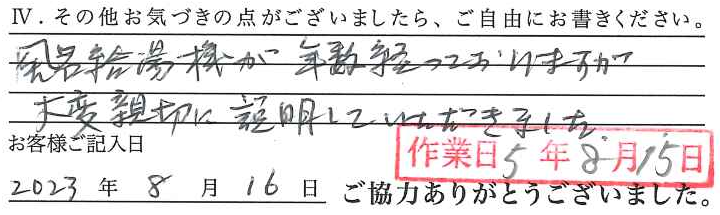 Ⅳ．その他お気づきの点がございましたら、ご自由にお書きください。
風呂給湯機が年数経っておりますが
大変親切に説明していただきました
お客様ご記入日
作業日5年8月15日
2023年8月16日 ご協力ありがとうございました。